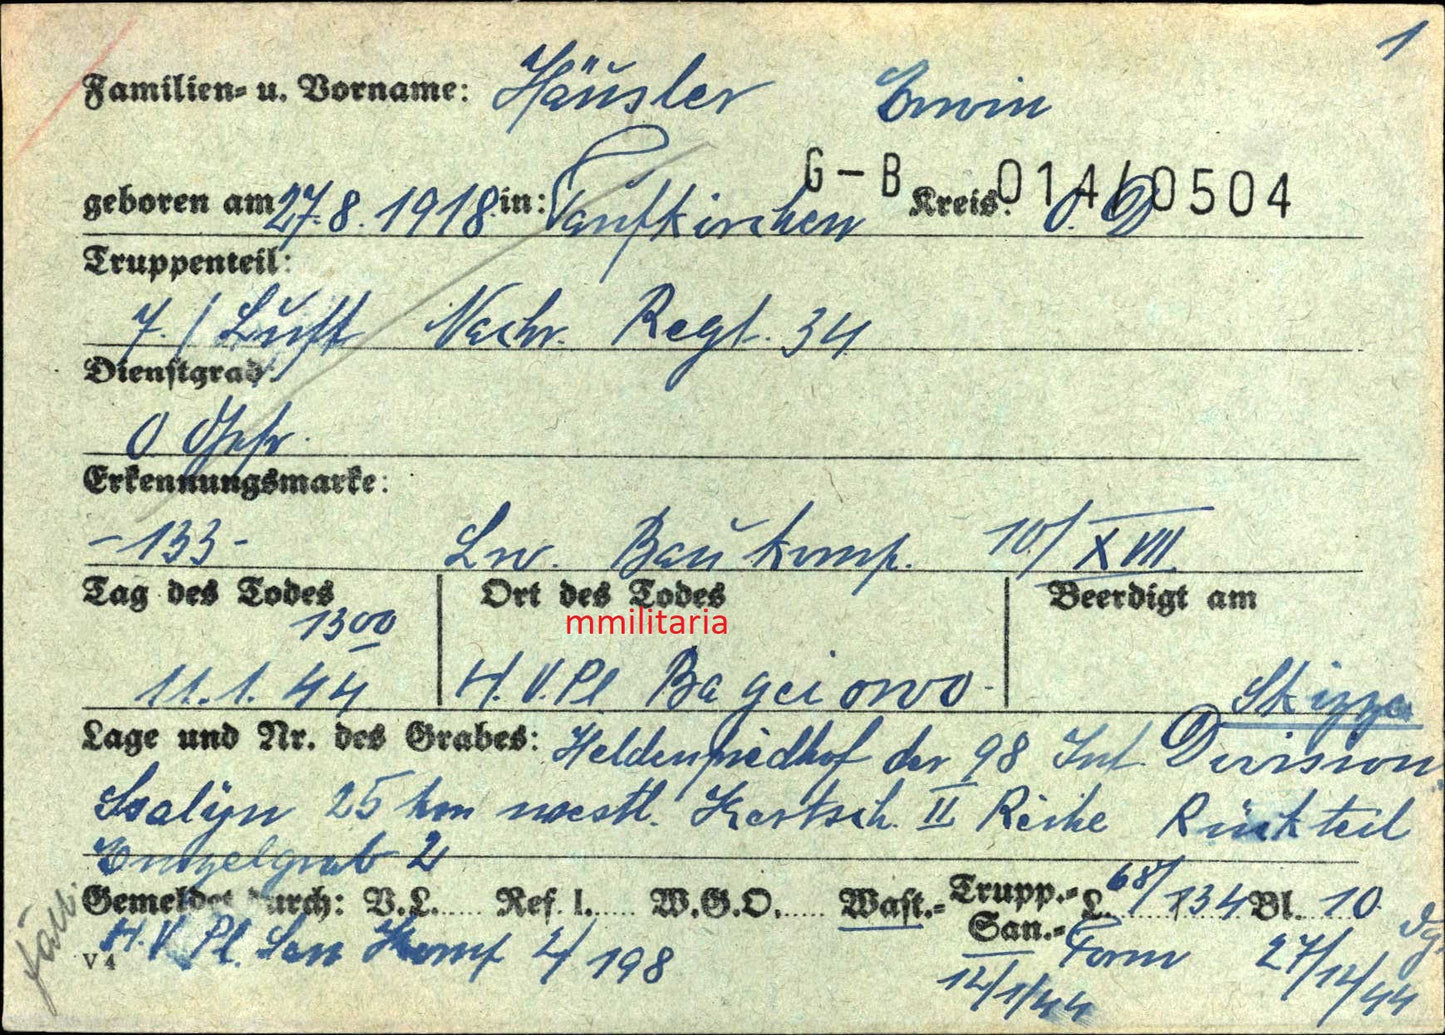 1
Familien- u. Vorname: Häusler Erwin
G-B 014/0504
geboren am 27.8.1918 in: Taufkirchen Kreis: O.D
Truppenteil:
7./Luft Nachr. Regt. 34
Dienstgrad:
O Gefr.
Erkennungsmarke:
-133- Lw. Bau komp. 10/XVII
Tag des Todes Ort des Todes Beerdigt am
1300 mmilitaria
11.1.44 H.V.Pl Bagerowo- Skizze
Lage und Nr. des Grabes: Heldenfriedhof der 98 Inf. Division
Ssalyn 25 km westl. Kertsch. II Reihe Rückteil
Einzelgrab 2
Gemeldet durch: V.L..... Ref. I..... W.G.O..... Wast.- Trupp.- San.- L. 68/134 Bl. 10
V4 H.V.Pl. San Komp 2/198 Form 27/12/44
12/1/44